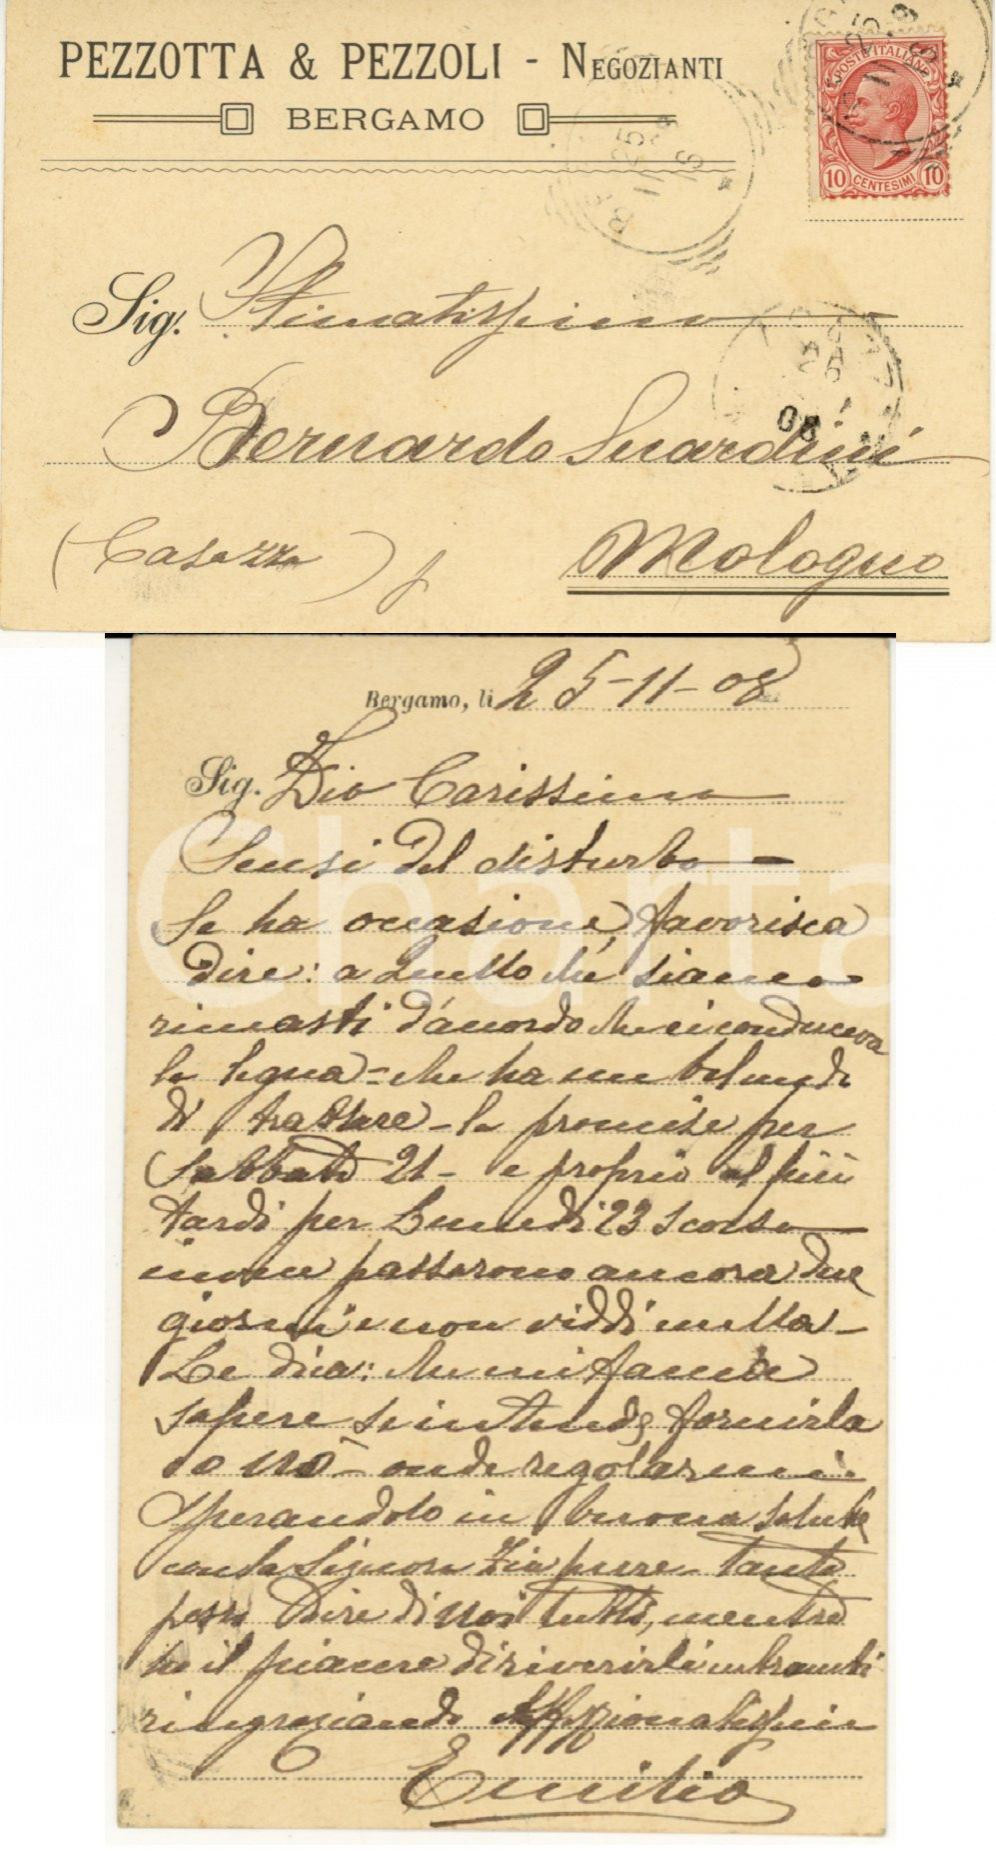 PEZZOTTA & PEZZOLI - NEGOZIANTI
BERGAMO
POSTE ITALIANE
10 CENTESIMI 10
Sig. Stimatissimo
Bernardo Suardini
(Casazza)
Mologno
08
Bergamo, li 25-11-08
Sig. Zio Carissimo
Scusi del disturbo
Se ha occasione, favorisca
dire: a quello che siamo
rimasti d'acordo che ci conduceva
la legna - che ha un bel modo
di trattare - la promise per
Sabbato 21 - e proprio al più
tardi per Lunedì 23 scorso
invece passarono ancora due
giorni e non viddi nulla -
Le dica: che mi faccia
sapere se intende fornirla
o no - onde regolarmi.
Sperandolo in buona salute
con la Signora Zia pure - tanto
posso dire di noi tutti, mentre
ho il piacere di riverirli entrambi
ringraziando Affezionatissimo
Emilio
iCharta